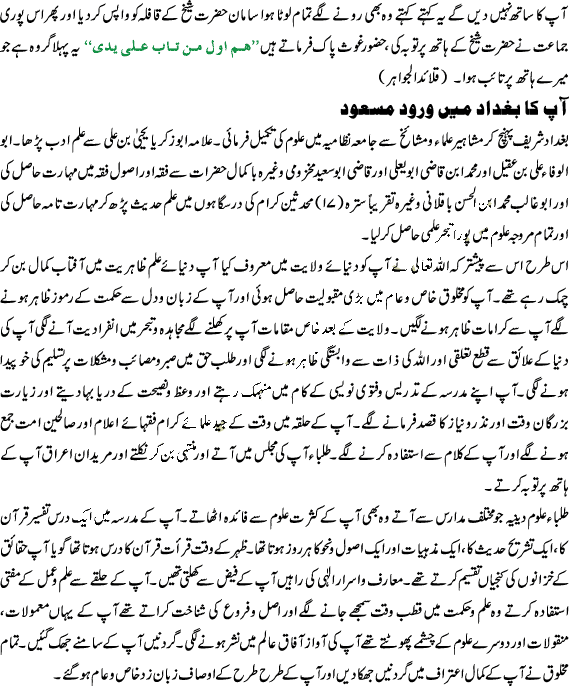 آپ کا ساتھ نہیں دیں گے یہ کہتے کہتے وہ بھی رونے لگے تمام لوٹا ہوا سامان حضرت شیخ کے قافلہ کو واپس کر دیا اور پھر اس پوری
جماعت نے حضرت شیخ کے ہاتھ پر توبہ کی، حضور غوث پاک فرماتے ہیں ”ھم اول من تاب علی یدی“ یہ پہلا گروہ ہے جو
میرے ہاتھ پر تائب ہوا۔ (قلائد الجواہر)
آپ کا بغداد میں ورود مسعود
بغداد شریف پہنچ کر مشاہیر علماء و مشائخ سے جامعہ نظامیہ میں علوم کی تکمیل فرمائی۔ علامہ ابوزکریا یحییٰ بن علی سے علم ادب پڑھا۔ ابو
الوفاء علی بن عقیل اور محمد ابن قاضی ابویعلی اور قاضی ابو سعید مخزومی وغیرہ با کمال حضرات سے فقہ اور اصول فقہ میں مہارت حاصل کی
اور ابو غالب محمد ابن الحسن باقلانی وغیرہ تقریباً سترہ (۱۷) محدثین کرام کی درسگاہوں میں علم حدیث پڑھ کر مہارت تامہ حاصل کی
اور تمام مروجہ علوم میں پورا تبحر علمی حاصل کر لیا۔
اس طرح اس سے پیشتر کہ اللہ تعالیٰ نے آپ کو دنیائے ولایت میں معروف کیا آپ دنیائے علم ظاہریت میں آفتاب کمال بن کر
چمک رہے تھے۔ آپ کو مخلوق خاص و عام میں بڑی مقبولیت حاصل ہوئی اور آپ کے زبان و دل سے حکمت کے رموز ظاہر ہونے
لگے آپ سے کرامات ظاہر ہونے لگیں۔ ولایت کے بعد خاص مقامات آپ پر کھلنے لگے مجاہدہ و تبحر میں انفرادیت آنے لگی آپ کی
دنیا کے علائق سے قطع تعلقی اور اللہ کی ذات سے وابستگی ظاہر ہونے لگی اور طلب حق میں صبر و مصائب و مشکلات پر تسلیم کی خو پیدا
ہونے لگی۔ آپ اپنے مدرسہ کے تدریس و فتویٰ نویسی کے کام میں منہمک رہتے اور وعظ و نصیحت کے دریا بہا دیتے اور زیارت
بزرگان وقت اور نذر و نیاز کا قصد فرمانے لگے۔ آپ کے حلقہ میں وقت کے جید علمائے کرام فقہائے اعلام اور صالحین امت جمع
ہونے لگے اور آپ کے کلام سے استفادہ کرنے لگے۔ طلباء آپ کی مجلس میں آتے اور منتہی بن کر نکلتے اور مریدان اعراق آپ کے
ہاتھ پر توبہ کرتے۔
طلباء علوم دینیہ جو مختلف مدارس سے آتے وہ بھی آپ کے کثرت علوم سے فائدہ اٹھاتے۔ آپ کے مدرسہ میں ایک درس تفسیر قرآن
کا، ایک تشریح حدیث کا، ایک مذہبیات اور ایک اصول و نحو کا ہر روز ہوتا تھا۔ ظہر کے وقت قرأت قرآن کا درس ہوتا تھا گویا آپ حقائق
کے خزانوں کی کنجیاں تقسیم کرتے تھے۔ معارف و اسرار الٰہی کی راہیں آپ کے فیض سے کھلتی تھیں۔ آپ کے حلقے سے علم و عمل کے مفتی
استفادہ کرتے وہ علم و حکمت میں قطب وقت سمجھے جانے لگے اور اصل و فروع کی شناخت کراتے تھے آپ کے یہاں معمولات،
منقولات اور دوسرے علوم کے چشمے پھوٹتے تھے آپ کی آواز آفاق عالم میں نشر ہونے لگی۔ گردنیں آپ کے سامنے جھک گئیں۔ تمام
مخلوق نے آپ کے کمال اعتراف میں گردنیں جھکا دیں اور آپ کے طرح طرح کے اوصاف زبان زد خاص و عام ہو گئے۔